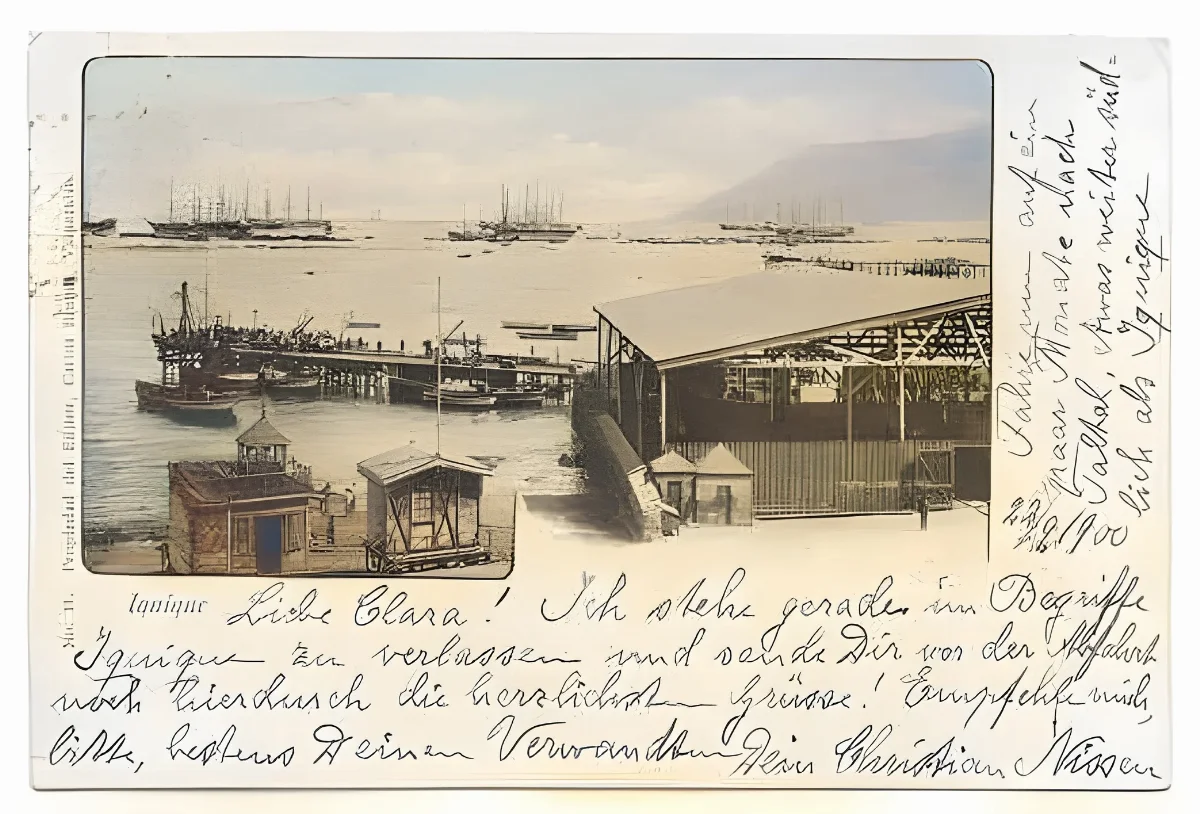 Iquique
Liebe Clara! Ich stehe gerade im Begriffe
Iquique zu verlassen und sende Dir vor der Abfahrt
noch hierdurch die herzlichsten Grüsse! Empfehle mich,
bitte, bestens Deinen Verwandten Dein Christian Nissen
Fahre nun auf ein
paar Monate nach
Taltal, etwas weiter süd=
lich als Iquique
/9/1900